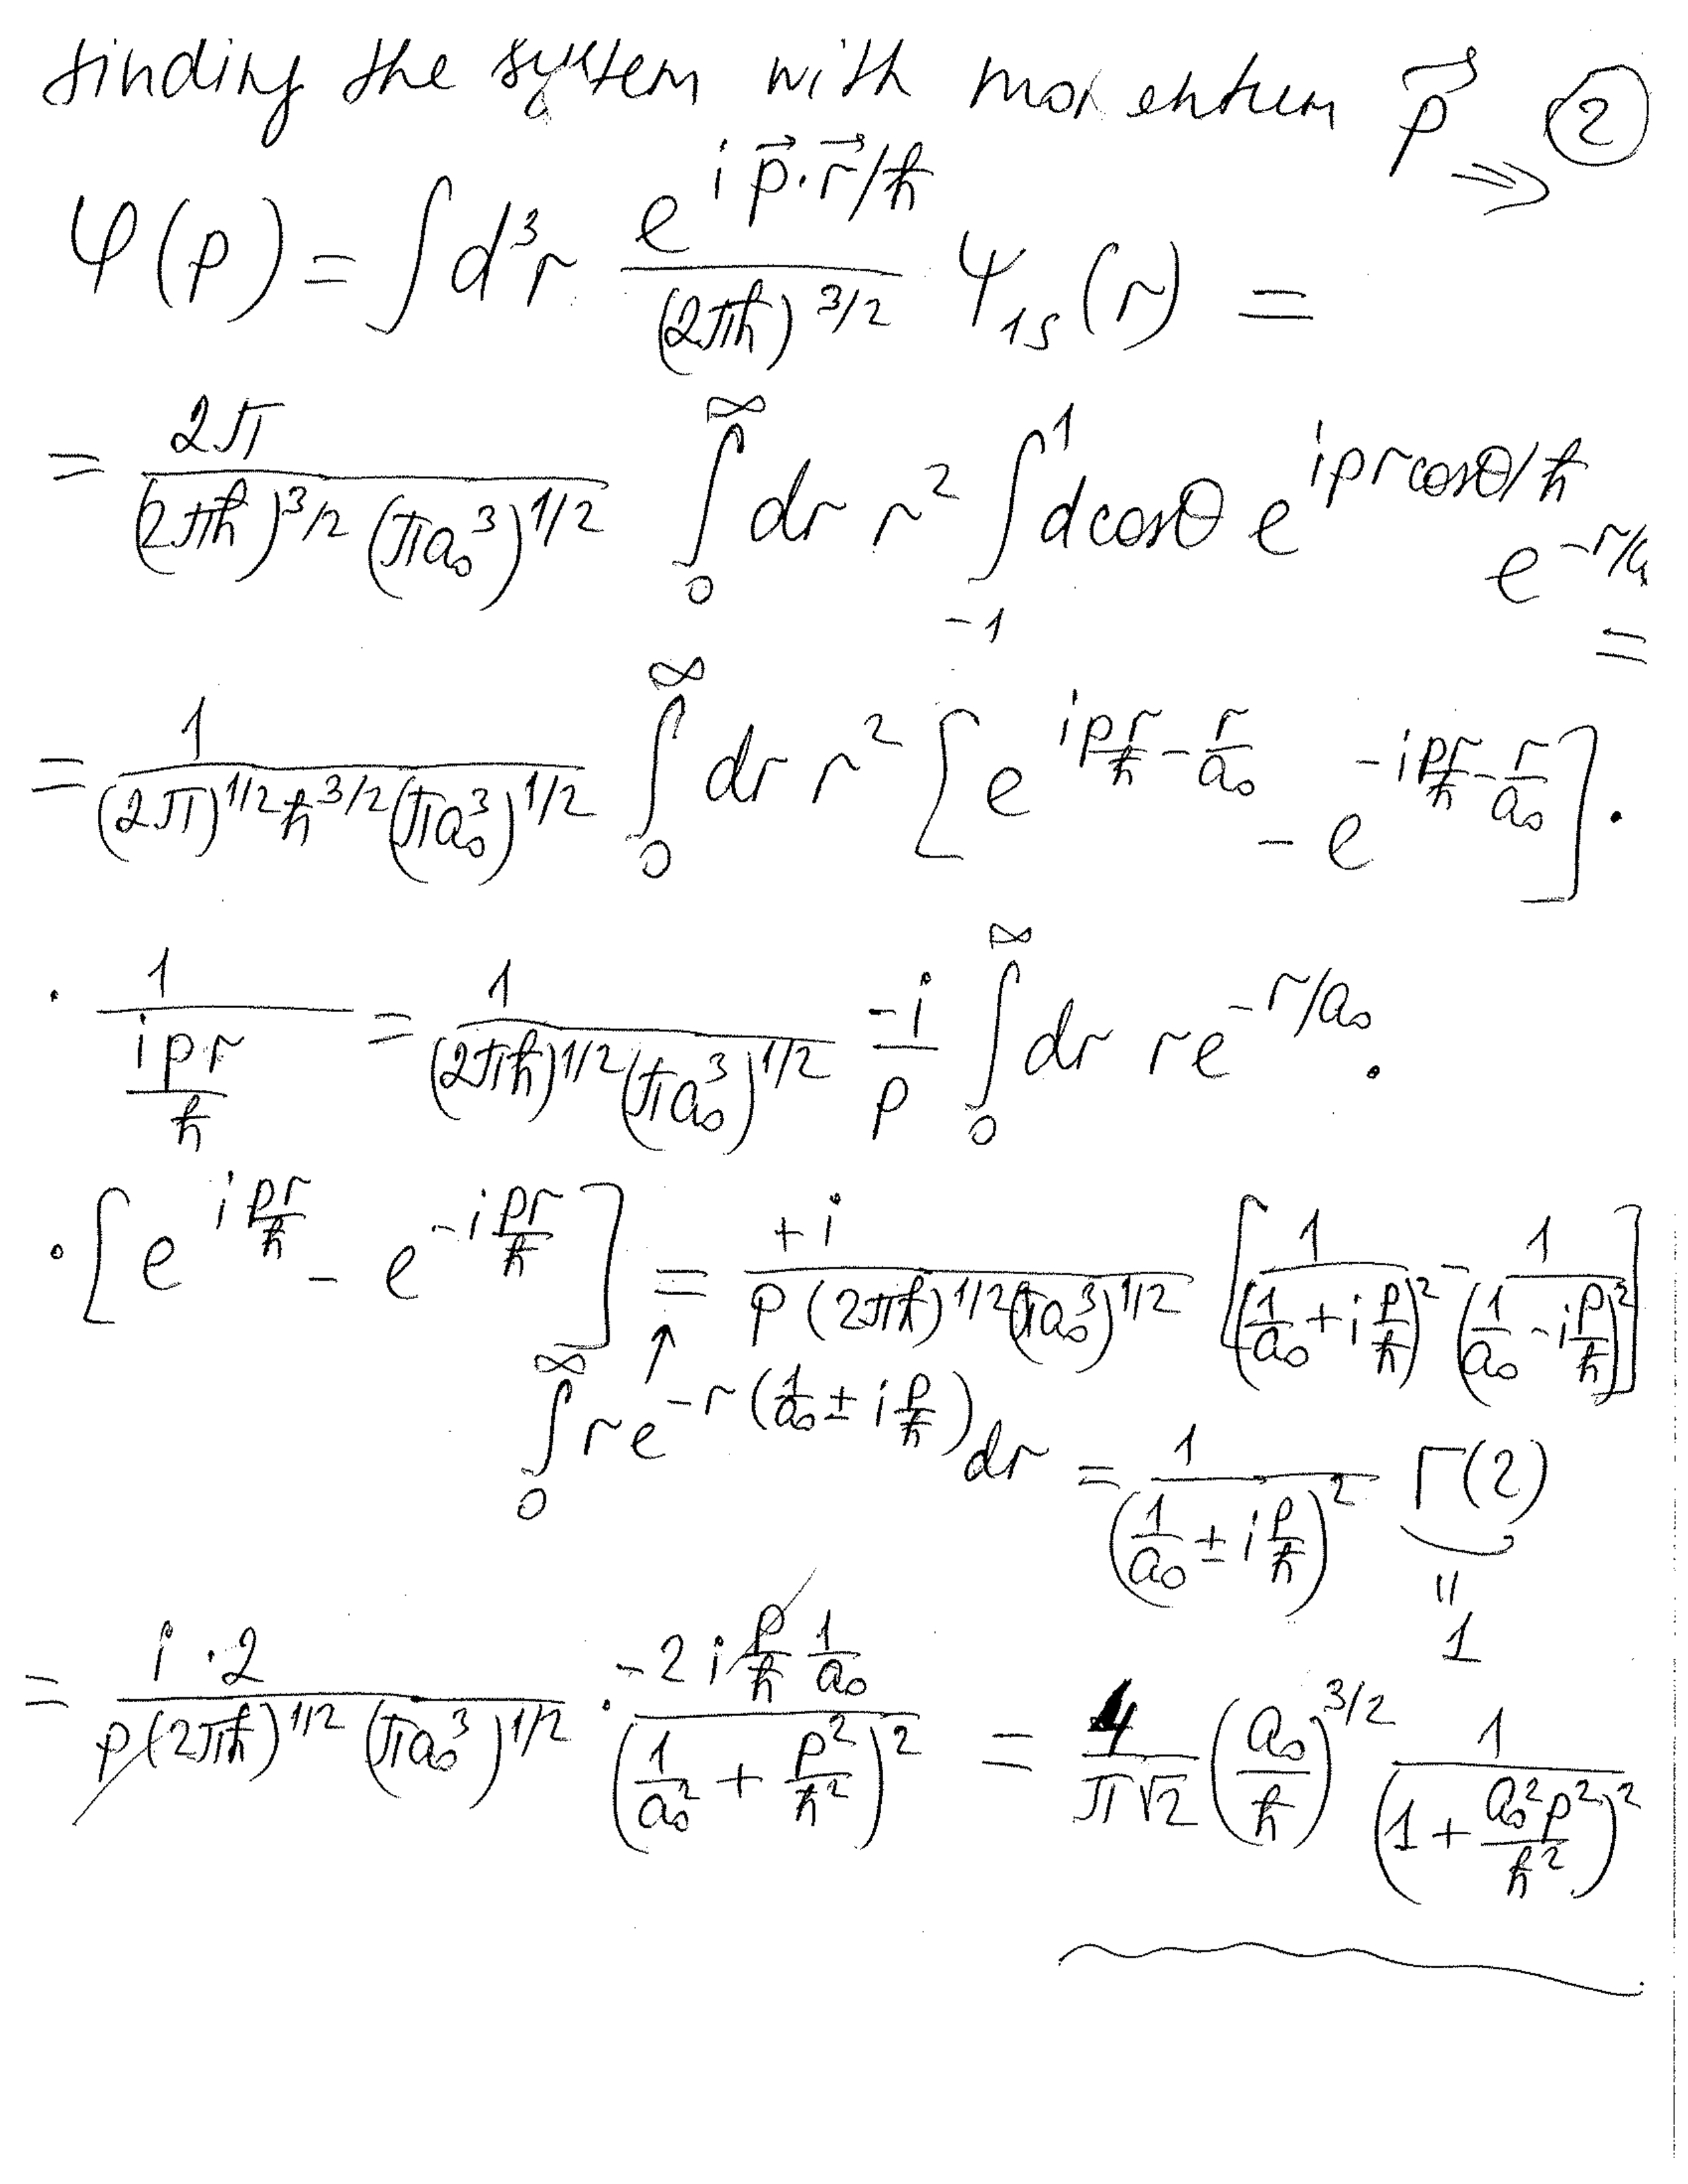 finding the system with momentum p⃗ ⇒ ②
φ(p) = ∫ d³r e^{i p⃗·r⃗/ħ} / (2πħ)^{3/2} ψ_{1s}(r) =
= 2π / ((2πħ)^{3/2} (πa₀³)^{1/2}) ∫_0^∞ dr r² ∫_{-1}^{1} dcosθ e^{iprcosθ/ħ} e^{-r/a₀} =
= 1 / ((2π)^{1/2} ħ^{3/2} (πa₀³)^{1/2}) ∫_0^∞ dr r² [e^{ipr/ħ - r/a₀} - e^{-ipr/ħ - r/a₀}] ·
· 1 / (ipr/ħ) = 1 / ((2πħ)^{1/2} (πa₀³)^{1/2}) -i/p ∫_0^∞ dr r e^{-r/a₀} ·
· [e^{ipr/ħ} - e^{-ipr/ħ}] = +i / (p (2πħ)^{1/2} (πa₀³)^{1/2}) [1/(1/a₀ + i p/ħ)² - 1/(1/a₀ - i p/ħ)²]
↑ ∫_0^∞ r e^{-r(1/a₀ ± i p/ħ)} dr = 1/(1/a₀ ± i p/ħ)² Γ(2)
"
1
= i · 2 / (p (2πħ)^{1/2} (πa₀³)^{1/2}) · -2i p/ħ 1/a₀ / (1/a₀² + p²/ħ²)² = 4/(π√2) (a₀/ħ)^{3/2} 1/(1 + a₀²p²/ħ²)²